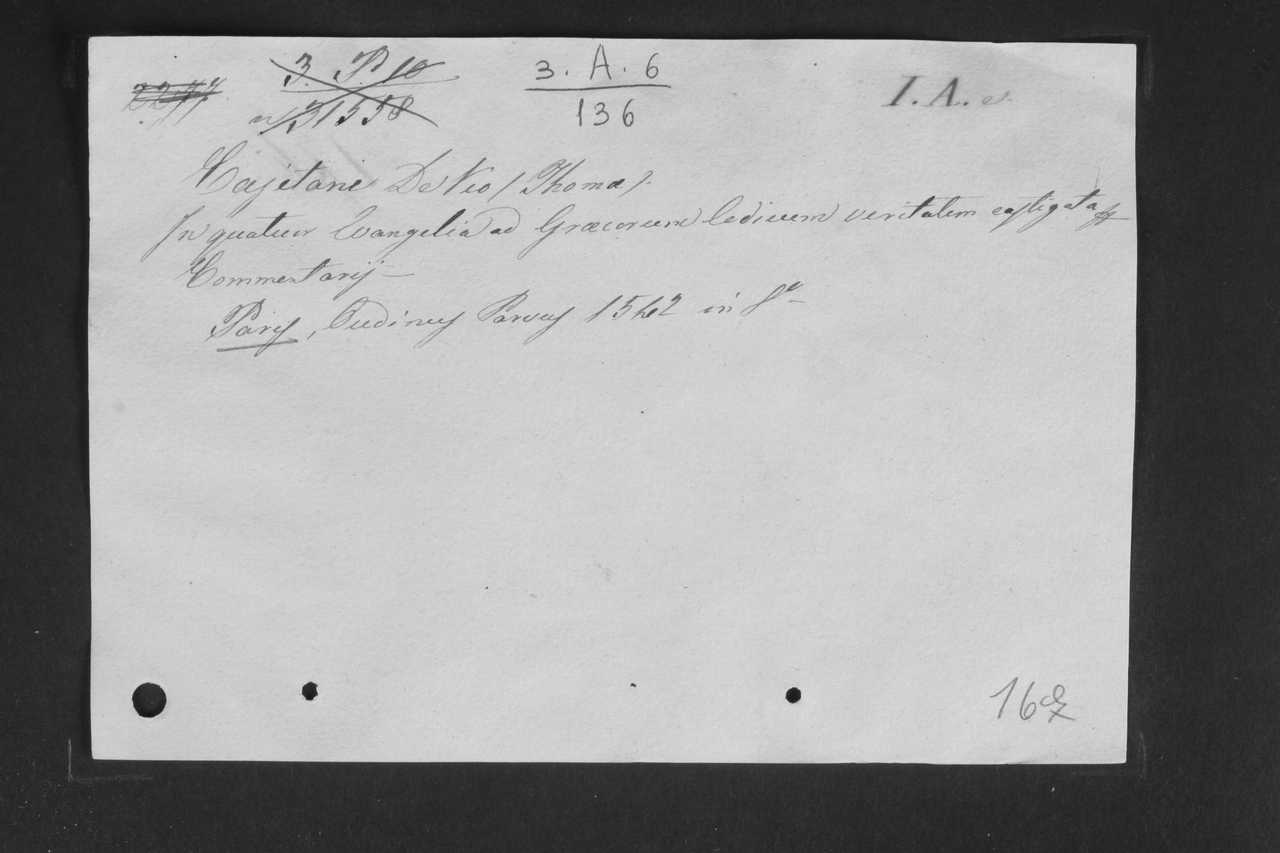 3. P. 10
n 31558
3. A. 6
136
I. A. e.
Cajetani De Vio (Thomæ).
In quatuor Evangelia ad Græcorum Codicum veritatem castigata
Commentarij
Parijs, Oudinus Parvus 1542 in 8º
16